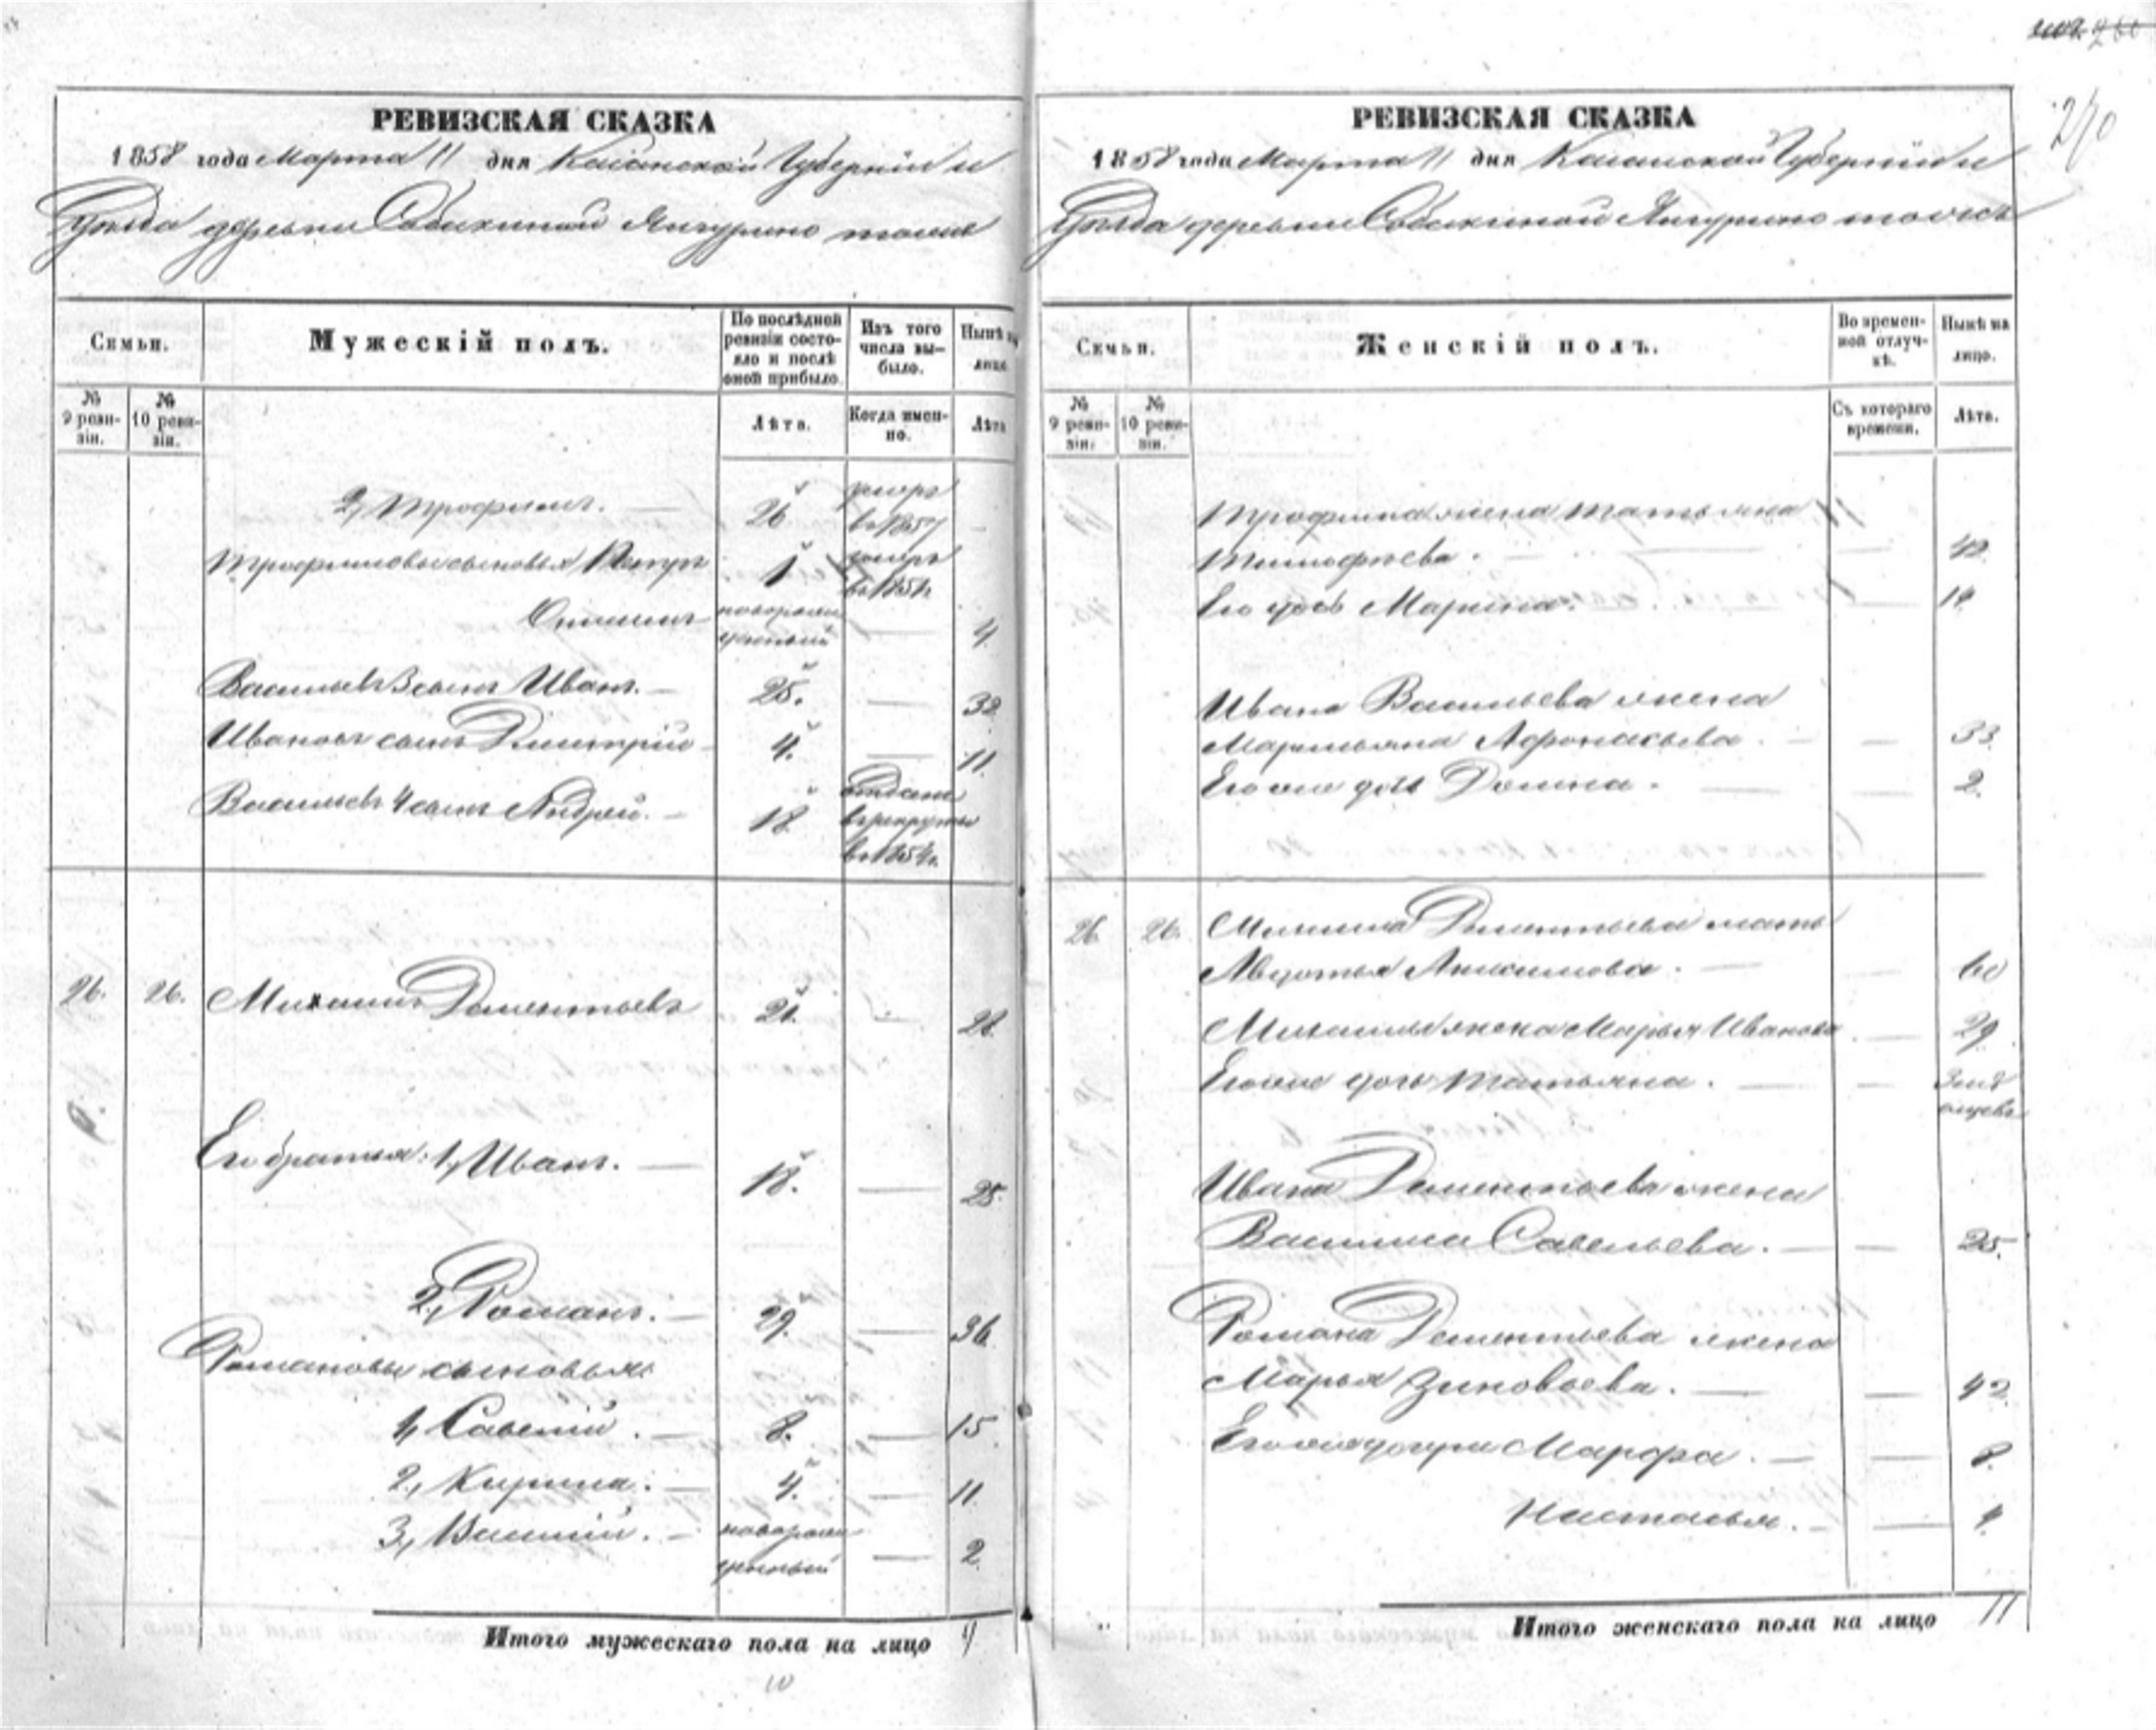 270
РЕВИЗСКАЯ СКАЗКА
1858 года Марта 11 дня Казанской Губерніи и
Уѣзда деревни Собакиной Янгурино тожъ
Семьи.
Мужескій полъ.
По послѣдней ревизіи состояло и послѣ оной прибыло.
Изъ того числа выбыло.
Нынѣ на лицо.
№ 9 ревизіи.
№ 10 ревизіи.
Лѣта.
Когда именно.
Лѣта.
2, Трофимъ. — 26 умеръ въ 1857 —
Трофимовы сыновья Петръ 1 умеръ въ 1851г.
новорожденный — 4
Васильевъ 3 сынъ Иванъ. — 25. — 32
Ивановъ сынъ Дмитрій — 4. — 11.
Васильевъ 4 сынъ Андрей. — 18 отданъ въ рекруты въ 1854г.
26. 26. Михаилъ Дементьевъ 21. — 28.
Его братья: 1, Иванъ. — 18. — 25.
2, Романъ. — 29. — 36
Романовы сыновья:
1, Савелій. — 8. — 15
2, Кирила. — 4. — 11.
3, Василій. — новорожденный — 2.
Итого мужескаго пола на лицо 9
10
РЕВИЗСКАЯ СКАЗКА
1858 года Марта 11 дня Казанской Губерніи и
Уѣзда деревни Собакиной Янгурино тожъ
Семьи.
Женскій полъ.
Во временной отлучкѣ.
Нынѣ на лицо.
№ 9 ревизіи.
№ 10 ревизіи.
Съ котораго времени.
Лѣта.
Трофима жена Татьяна
Тимофѣева. —
Его дочь Марина. —
Ивана Васильева жена
Маремьяна Афонасьева. — — 33.
Его же дочь Домна. — — 2.
26. 26. Михаила Дементьева мать
Авдотья Анисимова. — — 60
Михаилы жена Марья Иванова. — 29
Его же дочь Татьяна. — —
Ивана Дементьева жена
Василиса Савельева. — — 25.
Романа Дементьева жена
Марья Зиновьева. — — 42
Его же дочери Марфа. — — 8.
Настасья. — —
Итого женскаго пола на лицо 11